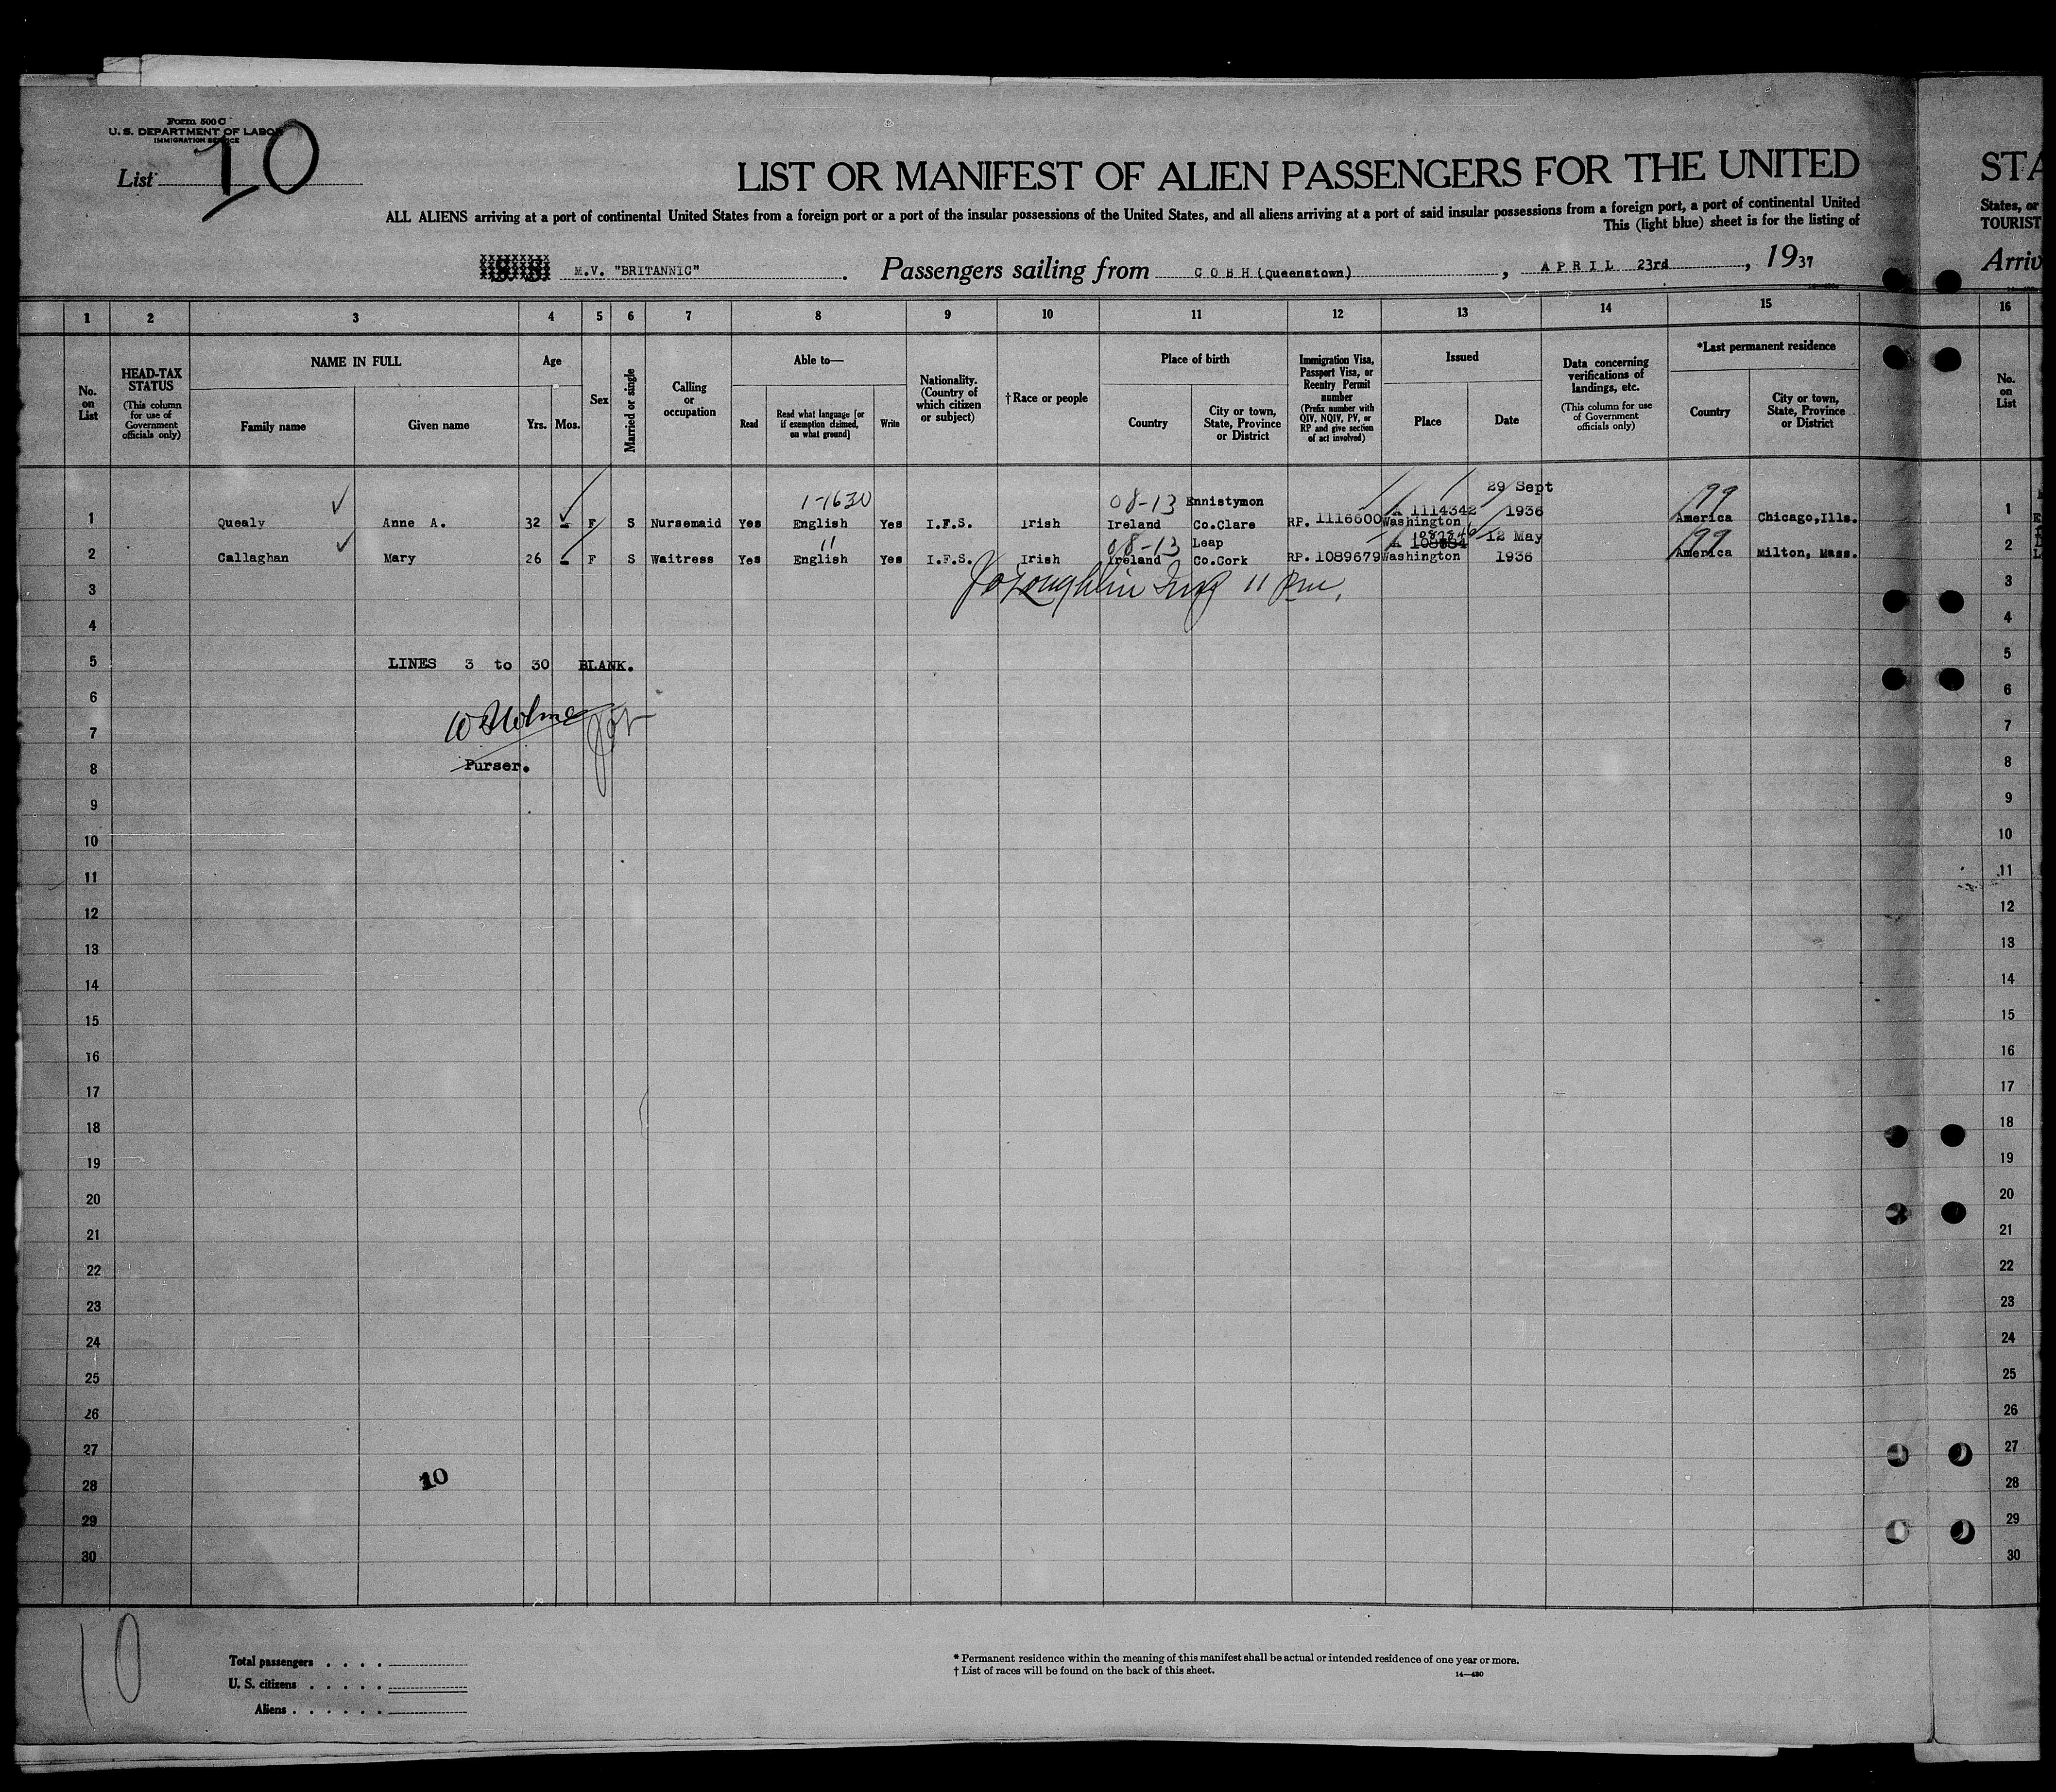 Form 500 C
U. S. DEPARTMENT OF LABOR
IMMIGRATION SERVICE
List 10
LIST OR MANIFEST OF ALIEN PASSENGERS FOR THE UNITED
STA
ALL ALIENS arriving at a port of continental United States from a foreign port or a port of the insular possessions of the United States, and all aliens arriving at a port of said insular possessions from a foreign port, a port of continental United
States, or
This (light blue) sheet is for the listing of
TOURIST
M.V. "BRITANNIC" . Passengers sailing from COBH (Queenstown) , APRIL 23rd , 1937
Arriv
1 2 3 4 5 6 7 8 9 10 11 12 13 14 15 16
No. on List
HEAD-TAX STATUS
(This column for use of Government officials only)
NAME IN FULL
Family name
Given name
Age
Yrs. Mos.
Sex
Married or single
Calling or occupation
Able to—
Read
Read what language [or if exemption claimed, on what ground]
Write
Nationality. (Country of which citizen or subject)
†Race or people
Place of birth
Country
City or town, State, Province or District
Immigration Visa, Passport Visa, or Reentry Permit number
(Prefix number with QIV, NQIV, PV, or RP and give section of act involved)
Issued
Place
Date
Data concerning verifications of landings, etc.
(This column for use of Government officials only)
*Last permanent residence
Country
City or town, State, Province or District
No. on List
1-1630 08-13 Ennistymon 1114342 29 Sept 99
1 Quealy Anne A. 32 - F S Nursemaid Yes English Yes I.F.S. Irish Ireland Co.Clare RP. 1116600 Washington 1936 America Chicago,Ills. 1
11 08-13 Leap 12 May 99
2 Callaghan Mary 26 - F S Waitress Yes English Yes I.F.S. Irish Ireland Co.Cork RP. 1089679 Washington 1936 America Milton, Mass. 2
3 11 pm. 3
4 4
5 LINES 3 to 30 BLANK. 5
6 6
7 7
8 Purser. 8
9 9
10 10
11 11
12 12
13 13
14 14
15 15
16 16
17 17
18 18
19 19
20 20
21 21
22 22
23 23
24 24
25 25
26 26
27 27
28 10 28
29 29
30 30
10
Total passengers . . . .
U. S. citizens . . . . .
Aliens . . . . . .
* Permanent residence within the meaning of this manifest shall be actual or intended residence of one year or more.
† List of races will be found on the back of this sheet.
14—430